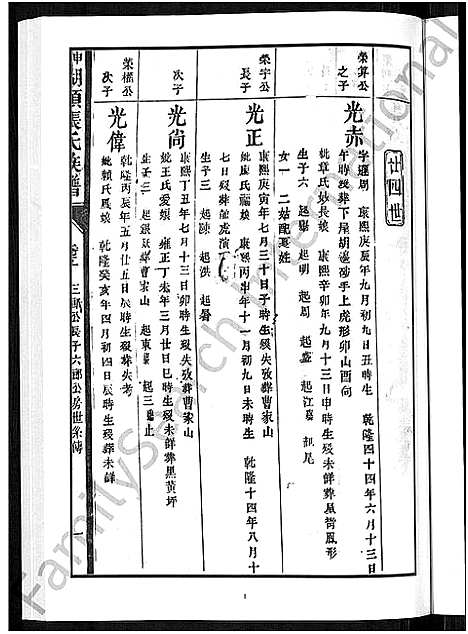 廿四世
榮算公
之子
光赤
字運周 康熙庚辰年九月初九日丑時生 乾隆四十四年六月十三日
午時歿葬下屋胡邊砂手上虎形卯山酉向
妣章氏 娘 康熙辛卯年九月十三日申時生歿未鮮葬屋背鳳形
生子六 起 起明 起周 起 起江 起尾
女一 二姑配 姓
榮宇公
長子
光正
康熙庚寅年七月三十日子時生歿失攷葬曹家山
妣康氏福娘 康熙丙申年十一月初九日未時生 乾隆十四年八月十
七日歿葬蛇處演
生子三 起陳 起洪 起眉
次子
光尚
康熙丁丑年七月十三日卯時生歿失攷葬曹家山
妣王氏爱娘 雍正丁未年三月廿日巳時生歿未鮮葬黑黃坪
生子三 起銀 葬曹家山 起東 起三 止
榮檻公
次子
光偉
乾隆丙辰年五月廿五日辰時生歿葬失考
妣賴氏鳳娘 乾隆癸亥年四月初四日辰時生歿葬未鮮
申湖頭張氏族譜
卷二 三郎公長子六郎公房世系傳
一
1
FamilySearch International